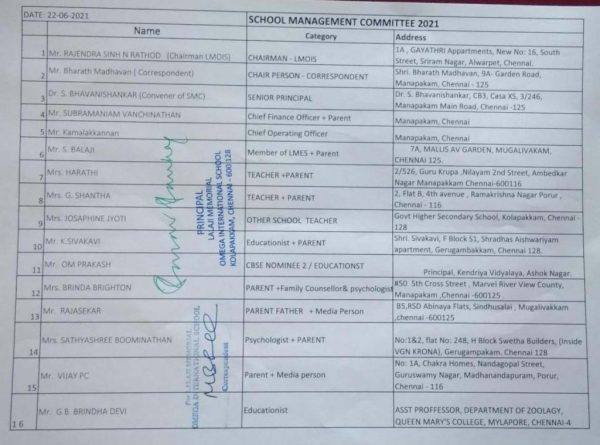 DATE: 22-06-2021
SCHOOL MANAGEMENT COMMITTEE 2021
Name Category Address
1 Mr. RAJENDRA SINH N RATHOD (Chairman LMOIS) CHAIRMAN - LMOIS 1A , GAYATHRI Appartments, New No: 16, South
Street, Sriram Nagar, Alwarpet, Chennai.
2 Mr. Bharath Madhavan ( Correspondent) CHAIR PERSON - CORRESPONDENT Shri. Bharath Madhavan, 9A- Garden Road,
Manapakam, Chennai -125
3 Dr. S. BHAVANISHANKAR (Convener of SMC) SENIOR PRINCIPAL Dr. S. Bhavanishankar, CB3, Casa XS, 3/246,
Manapakam Main Road, Chennai -125.
4 Mr. SUBRAMANIAM VANCHINATHAN Chief Finance Officer + Parent Manapakam, Chennai
5 Mr. Kamalakkannan Chief Operating Officer Manapakam, Chennai
6 Mr. S. BALAJI Member of LMES + Parent 7A, MALLIS AV GARDEN, MUGALIVAKAM,
CHENNAI, 125.
7 Mrs. HARATHI TEACHER +PARENT 2/526, Guru Krupa ,Nilayam 2nd Street, Ambedkar
Nagar Manapakkam Chennai-600116
8 Mrs. G. SHANTHA TEACHER + PARENT 2, Flat B, 4th avenue , Ramakrishna Nagar Porur ,
Chennai - 116
9 Mrs. JOSAPHINE JYOTI OTHER SCHOOL TEACHER Govt Higher Secondary School, Kolapakkam, Chennai -
128
10 Mr. K.SIVAKAVI Educationist + PARENT Shri. Sivakavi, F Block S1, Shradhas Aishwariyam
apartment, Chennai, Gerugambakkam, Chennai 128.
11 Mr. OM PRAKASH CBSE NOMINEE 2 / EDUCATIONST Principal, Kendriya Vidyalaya, Ashok Nagar.
12 Mrs. BRINDA BRIGHTON PARENT +Family Counsellor& psychologist #50 5th Cross Street , Marvel River View County,
Manapakam ,Chennai -600125
13 Mr. RAJASEKAR PARENT FATHER + Media Person B5,RSD Abinaya Flats, Sindhusalai , Mugalivakkam
,chennai -600125
14 Mrs. SATHYASHREE BOOMINATHAN Psychologist + PARENT No:1&2, flat No: 24B, H Block Swetha Builders, (Inside
VGN KRONA), Gerugampakam. Chennai 128
15 Mr. VIJAY PC Parent + Media person No: 1A, Chakra Homes, Nandagopal Street,
Guruswamy Nagar, Madhanandapuram, Porur,
Chennai - 116
16 Mr. G.B. BRINDHA DEVI Educationist ASST PROFFESSOR, DEPARTMENT OF ZOOLAGY,
QUEEN MARY'S COLLEGE, MYLAPORE, CHENNAI-4
PRINCIPAL
LALAJI MEMORIAL
OMEGA INTERNATIONAL SCHOOL
KOLAPAKKAM, CHENNAI - 600 128
For LALAJI MEMORIAL
OMEGA INTERNATIONAL SCHOOL
Correspondent